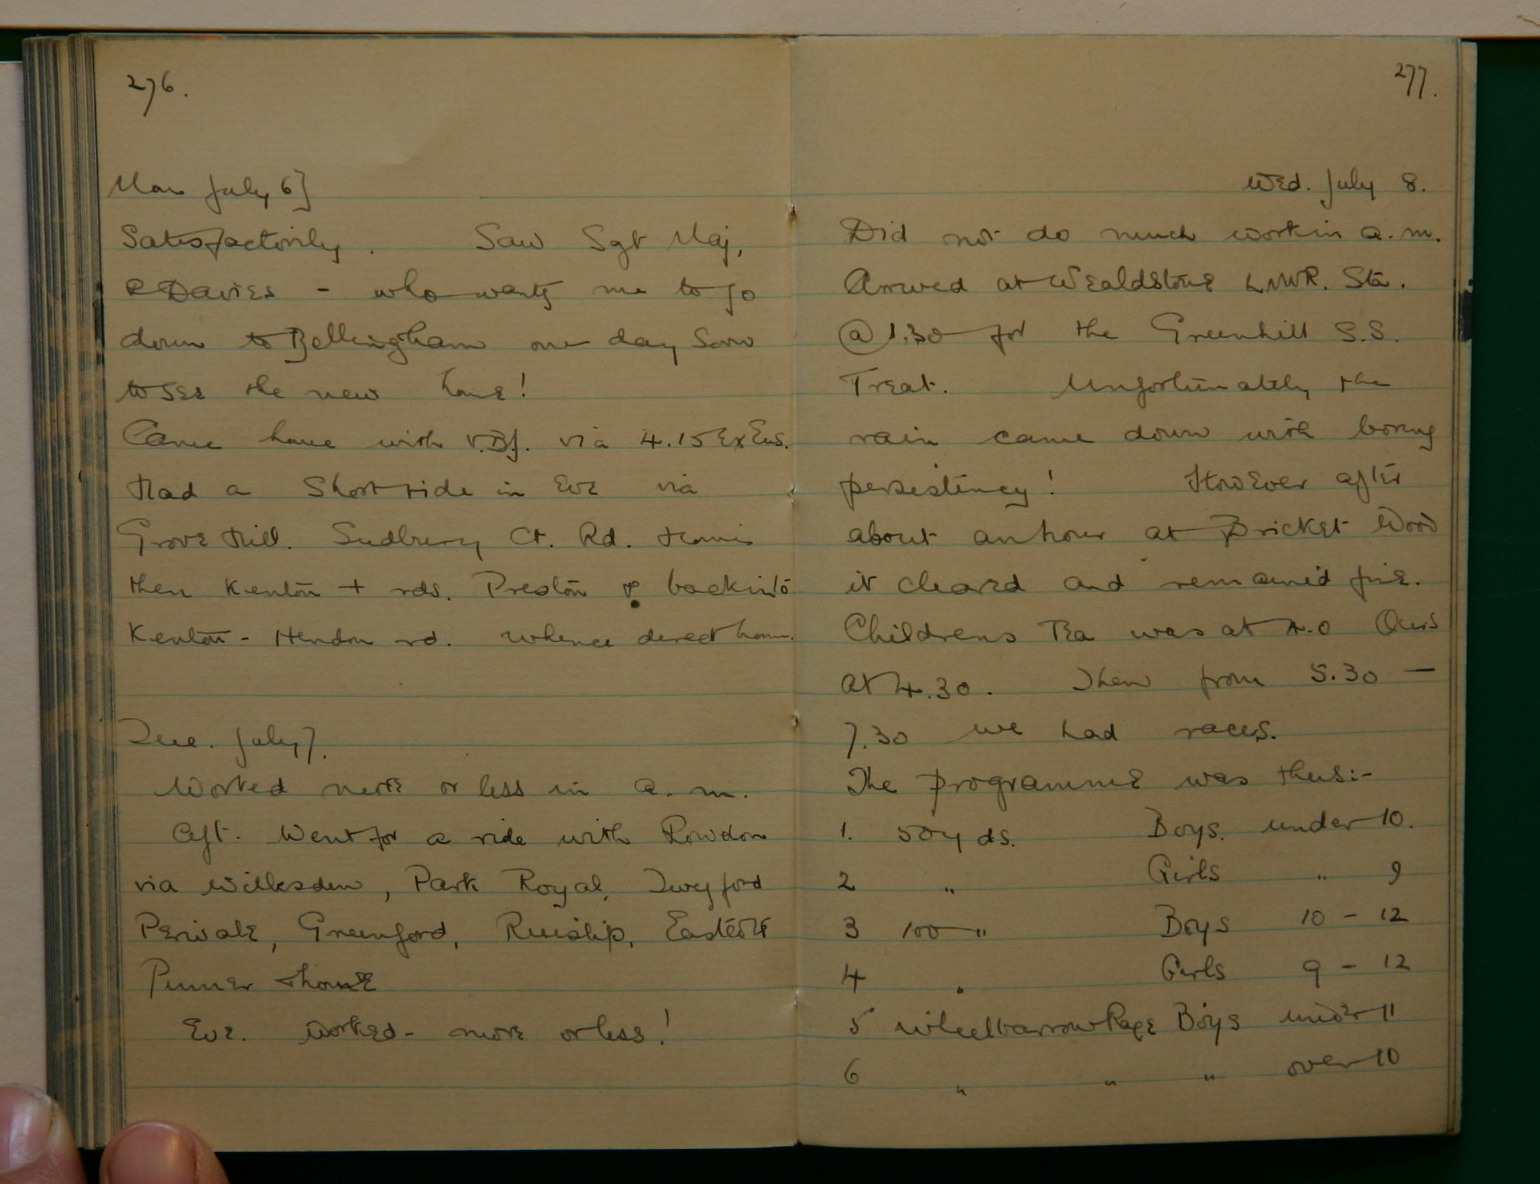 276.
Mon July 6]
Satisfactorily. Saw Sgt Maj,
Davies - who wants me to go
down to Bellingham one day soon
to see the new home!
Came home with V.B.J. via 4.15 Ex Eus.
Had a short ride in Eve via
Grove Hill. Sudbury Ct. Rd.
then Kenton + rds. Preston & back into
Kenton - Hendon rd. whence direct home.
Tue. July 7.
Worked more or less in a.m.
Aft. Went for a ride with Rowdon
via Willesden, Park Royal, Twyford
Perivale, Greenford, Ruislip, Eastcote
Pinner & home
Eve. Worked - more or less!
277.
Wed. July 8.
Did not do much work in a.m.
Arrived at Wealdstone LNWR. Sta.
@ 1.30 for the Greenhill S.S.
Treat. Unfortunately the
rain came down with boring
persistency! However after
about an hour at Bricket Wood
it cleared and remained fine.
Childrens Tea was at 4.0 Ours
at 4.30. Then from 5.30 —
7.30 we had races.
The programme was thus:-
1. 50 yds. Boys. under 10.
2 " Girls " 9
3 100 " Boys 10 - 12
4 " Girls 9 - 12
5 Wheelbarrow Race Boys under 11
6 " " " over 10